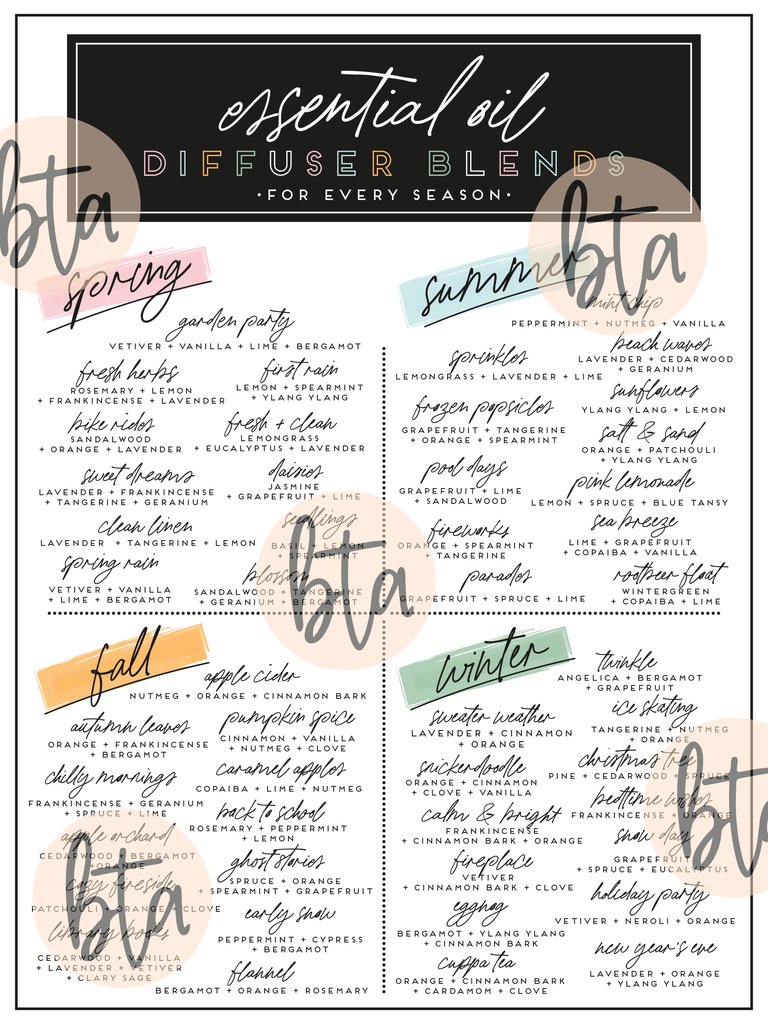 essential oil
DIFFUSER BLENDS
•FOR EVERY SEASON•
bta
bta
spring
garden party
VETIVER + VANILLA + LIME + BERGAMOT
fresh herbs
ROSEMARY + LEMON
+ FRANKINCENSE + LAVENDER
first rain
LEMON + SPEARMINT
+ YLANG YLANG
bike rides
SANDALWOOD
+ ORANGE + LAVENDER
fresh + clean
LEMONGRASS
+ EUCALYPTUS + LAVENDER
sweet dreams
LAVENDER + FRANKINCENSE
+ TANGERINE + GERANIUM
daisies
JASMINE
+ GRAPEFRUIT + LIME
clean linen
LAVENDER + TANGERINE + LEMON
seedlings
BASIL + LEMON
+ SPEARMINT
spring rain
VETIVER + VANILLA
+ LIME + BERGAMOT
blossom
SANDALWOOD + TANGERINE
+ GERANIUM + BERGAMOT
bta
summer
mint chip
PEPPERMINT + NUTMEG + VANILLA
sprinkles
LEMONGRASS + LAVENDER + LIME
beach waves
LAVENDER + CEDARWOOD
+ GERANIUM
frozen popsicles
GRAPEFRUIT + TANGERINE
+ ORANGE + SPEARMINT
sunflowers
YLANG YLANG + LEMON
salt & sand
ORANGE + PATCHOULI
+ YLANG YLANG
pool days
GRAPEFRUIT + LIME
+ SANDALWOOD
pink lemonade
LEMON + SPRUCE + BLUE TANSY
fireworks
ORANGE + SPEARMINT
+ TANGERINE
sea breeze
LIME + GRAPEFRUIT
+ COPAIBA + VANILLA
parades
GRAPEFRUIT + SPRUCE + LIME
rootbeer float
WINTERGREEN
+ COPAIBA + LIME
fall
apple cider
NUTMEG + ORANGE + CINNAMON BARK
autumn leaves
ORANGE + FRANKINCENSE
+ BERGAMOT
pumpkin spice
CINNAMON + VANILLA
+ NUTMEG + CLOVE
chilly mornings
FRANKINCENSE + GERANIUM
+ SPRUCE + LIME
caramel apples
COPAIBA + LIME + NUTMEG
back to school
ROSEMARY + PEPPERMINT
+ LEMON
apple orchard
CEDARWOOD + BERGAMOT
+ ORANGE
ghost stories
SPRUCE + ORANGE
+ SPEARMINT + GRAPEFRUIT
cozy fireside
PATCHOULI + ORANGE + CLOVE
early snow
PEPPERMINT + CYPRESS
+ BERGAMOT
library books
CEDARWOOD + VANILLA
+ LAVENDER + VETIVER
+ CLARY SAGE
flannel
BERGAMOT + ORANGE + ROSEMARY
bta
winter
twinkle
ANGELICA + BERGAMOT
+ GRAPEFRUIT
sweater weather
LAVENDER + CINNAMON
+ ORANGE
ice skating
TANGERINE + NUTMEG
+ ORANGE
snickerdoodle
ORANGE + CINNAMON
+ CLOVE + VANILLA
christmas tree
PINE + CEDARWOOD + SPRUCE
calm & bright
FRANKINCENSE
+ CINNAMON BARK + ORANGE
bedtime wishes
FRANKINCENSE + ORANGE
snow day
GRAPEFRUIT
+ SPRUCE + EUCALYPTUS
fireplace
VETIVER
+ CINNAMON BARK + CLOVE
holiday party
VETIVER + NEROLI + ORANGE
eggnog
BERGAMOT + YLANG YLANG
+ CINNAMON BARK
new year's eve
LAVENDER + ORANGE
+ YLANG YLANG
cuppa tea
ORANGE + CINNAMON BARK
+ CARDAMOM + CLOVE
bta